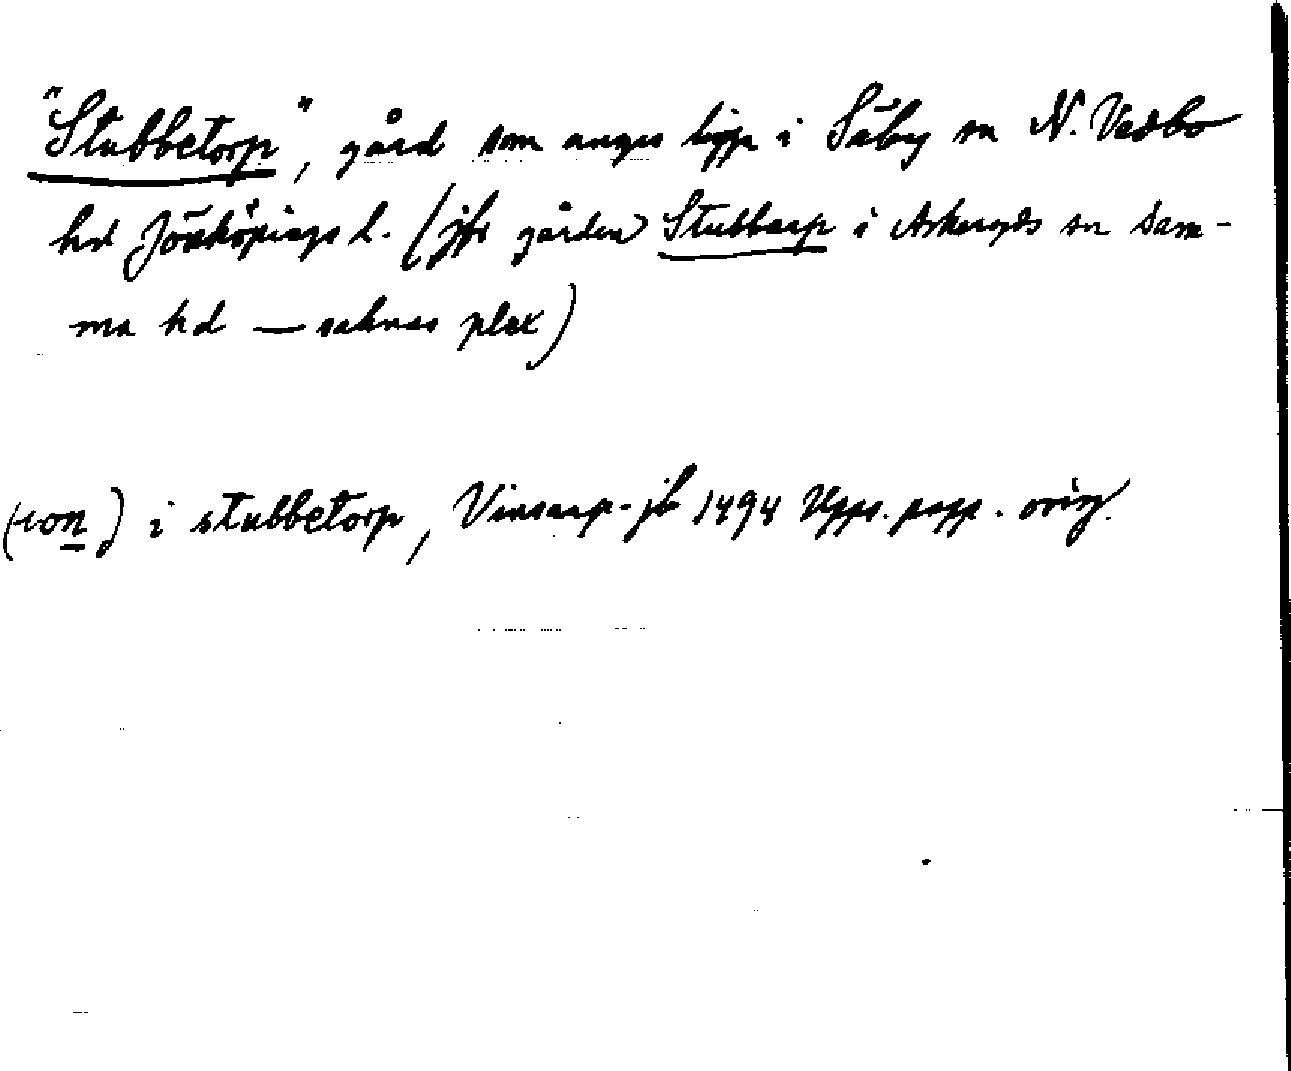 "Stubbetorp", gård som anges ligga i Säby sn N. Vedbo
hd Jönköpings l. (jfr gården Stubbarp i Askeryds sn sam-
ma hd — saknas plac)
(ion) i stubbetorp, Vinsarp-jb 1494 Upps. papp. orig.